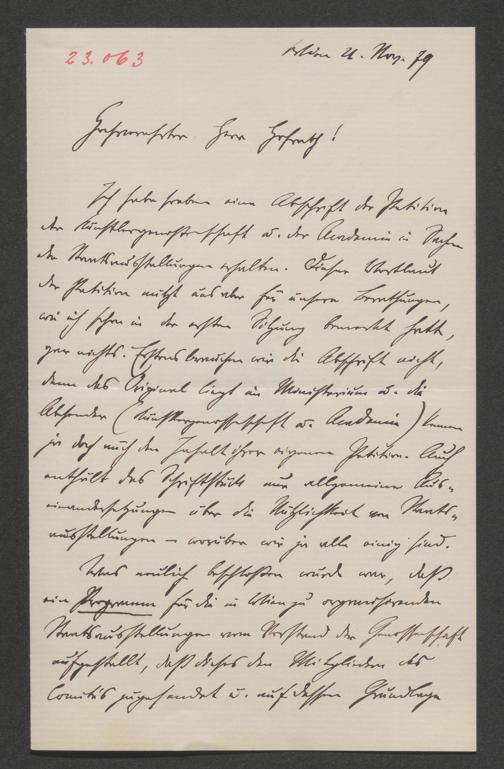 23.063
Wien 21. Nov. 79
Hochverehrter Herr Hofrath!
Ich habe soeben eine Abschrift der Petition
der Künstlergenossenschaft u. der Academie in Sachen
der Staatsausstellungen erhalten. Dieser Wortlaut
der Petition nützt uns aber für unsere Berathungen,
wie ich schon in der ersten Sitzung bemerkt hatte,
gar nichts. Erstens brauchen wir die Abschrift nicht,
denn das Original liegt im Ministerium u. die
Absender (Künstlergenossenschaft u. Academie) kennen
ja doch auch den Inhalt ihrer eigenen Petition. Auch
enthält das Schriftstück nur allgemeine Aus-
einandersetzungen über die Nützlichkeit von Staats-
ausstellungen – worüber wir ja alle einig sind.
Was neulich beschlossen wurde war, daß
ein Programm für die in Wien zu organisirenden
Staatsausstellungen vom Vorstand der Genossenschaft
aufgestellt, daß dieses den Mitgliedern des
Comités zugesendet u. auf dessen Grundlage